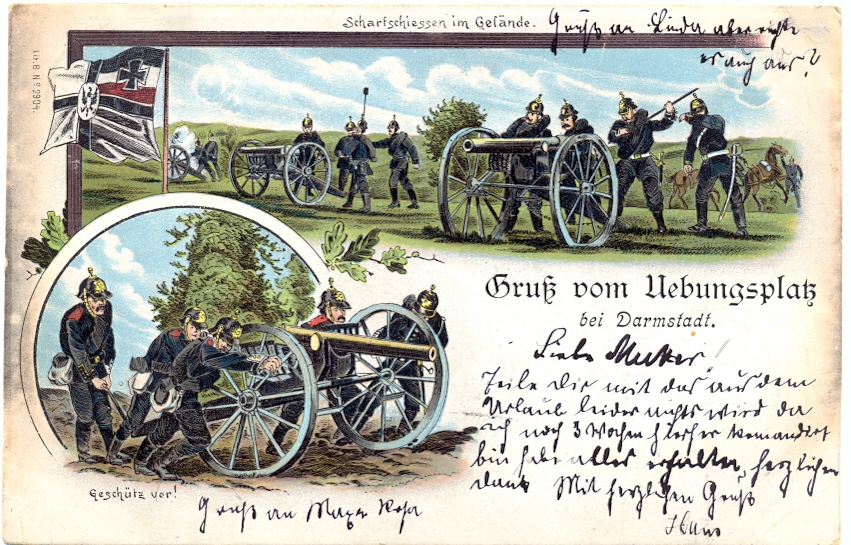 Scharfschiessen im Gelände.
Gruß an Linda aber
es auch aus?
Lit. B. No 2904.
Gruß vom Uebungsplatz
bei Darmstadt.
Liebe Mutter!
Teile Dir mit das aus dem
Urlaub leider nichts wird da
ich noch 3 Wochen hierher komandirt
bin habe alles erhalten, herzlichen
Dank Mit herzlichen Gruß
Hans
Geschütz vor!
Gruß an